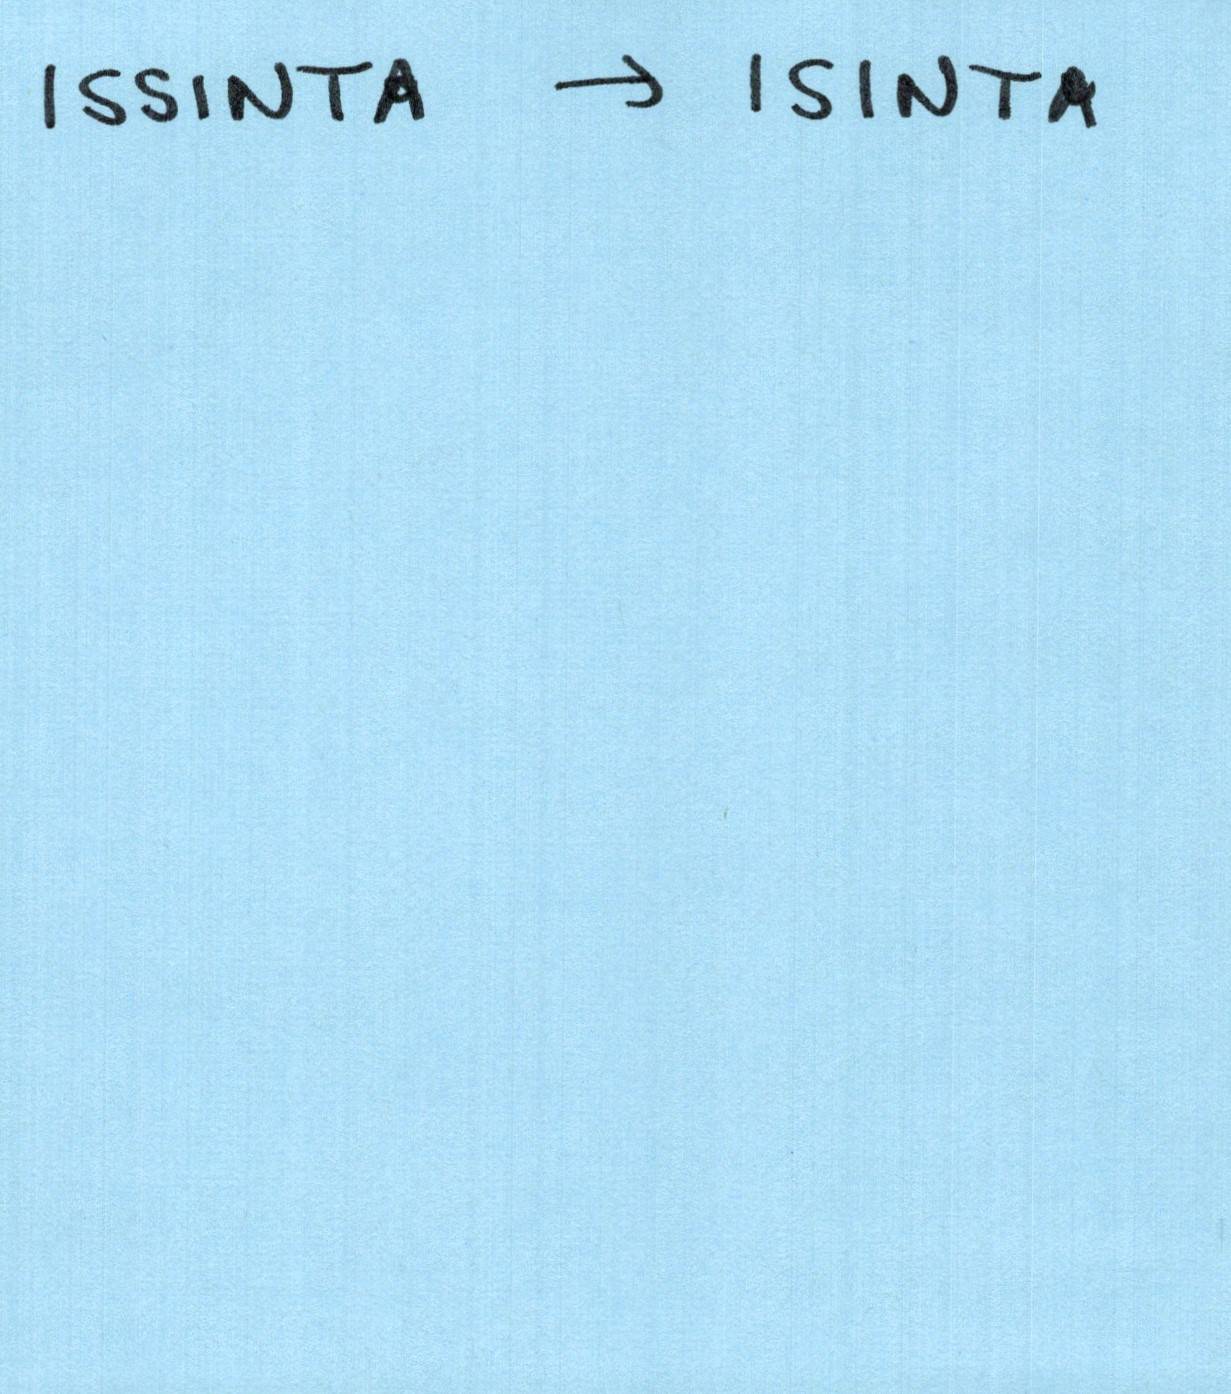 ISSINTA → ISINTA